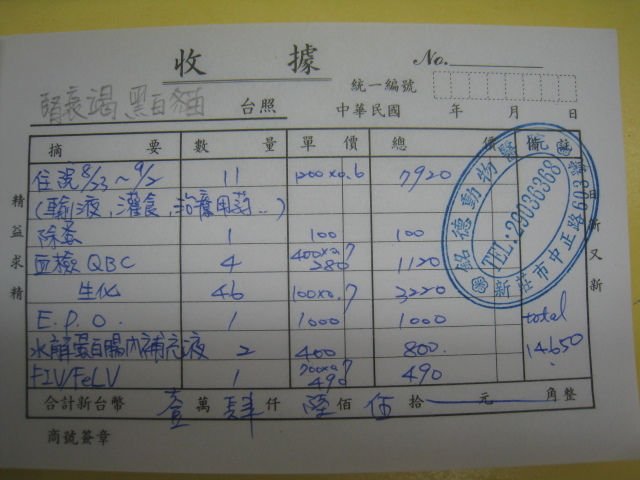 收據
No.
統一編號
腎衰竭 黑白貓 台照
中華民國 年 月 日
摘要 數量 單價 總價 備註
住院 8/23~9/2 11 1200x0.6 7920
(輸液,灌食,治療用葯...)
除蚤 1 100 100
血檢 QBC 4 400x0.7 280 1120
生化 46 100x0.7 3220
E.P.O. 1 1000 1000 total
水解蛋白腸內補充液 2 400 800 14650
FIV/FeLV 1 700x0.7 490 490
合計新台幣 壹萬肆仟陸佰伍拾 元 角整
商號簽章
精益求精
日新又新
銘德動物醫院
TEL:29036363
新莊市中正路609號